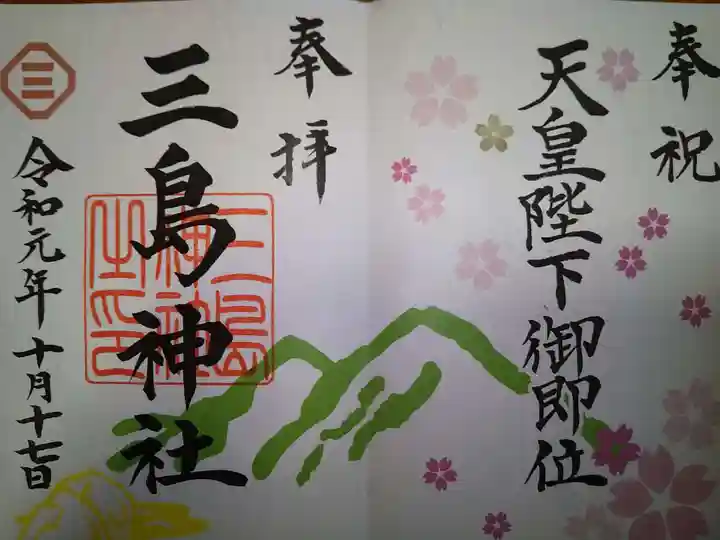 奉祝
天皇陛下御即位
奉拝
三島神社
三島神社之印
三
令和元年十月十七日